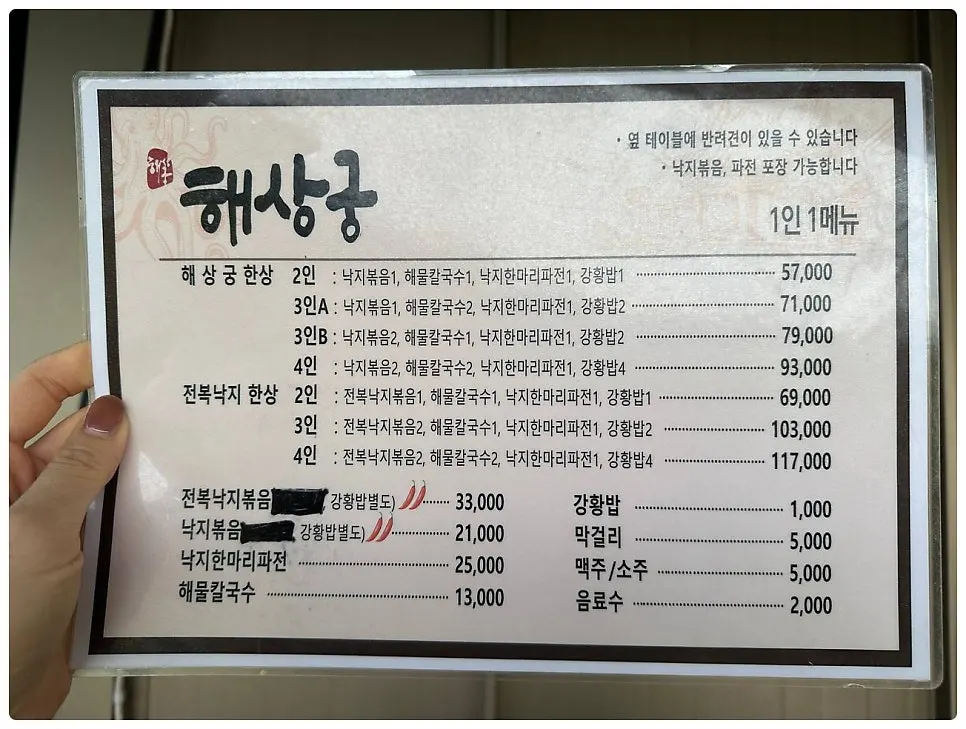 · 옆 테이블에 반려견이 있을 수 있습니다
· 낙지볶음, 파전 포장 가능합니다
해상궁
해상궁
1인 1메뉴
해 상 궁 한상 2인 : 낙지볶음1, 해물칼국수1, 낙지한마리파전1, 강황밥1 57,000
3인A : 낙지볶음1, 해물칼국수2, 낙지한마리파전1, 강황밥2 71,000
3인B : 낙지볶음2, 해물칼국수1, 낙지한마리파전1, 강황밥2 79,000
4인 : 낙지볶음2, 해물칼국수2, 낙지한마리파전1, 강황밥4 93,000
전복낙지 한상 2인 : 전복낙지볶음1, 해물칼국수1, 낙지한마리파전1, 강황밥1 69,000
3인 : 전복낙지볶음2, 해물칼국수1, 낙지한마리파전1, 강황밥2 103,000
4인 : 전복낙지볶음2, 해물칼국수2, 낙지한마리파전1, 강황밥4 117,000
전복낙지볶음 , 강황밥별도) 33,000
낙지볶음 강황밥별도) 21,000
낙지한마리파전 25,000
해물칼국수 13,000
강황밥 1,000
막걸리 5,000
맥주/소주 5,000
음료수 2,000